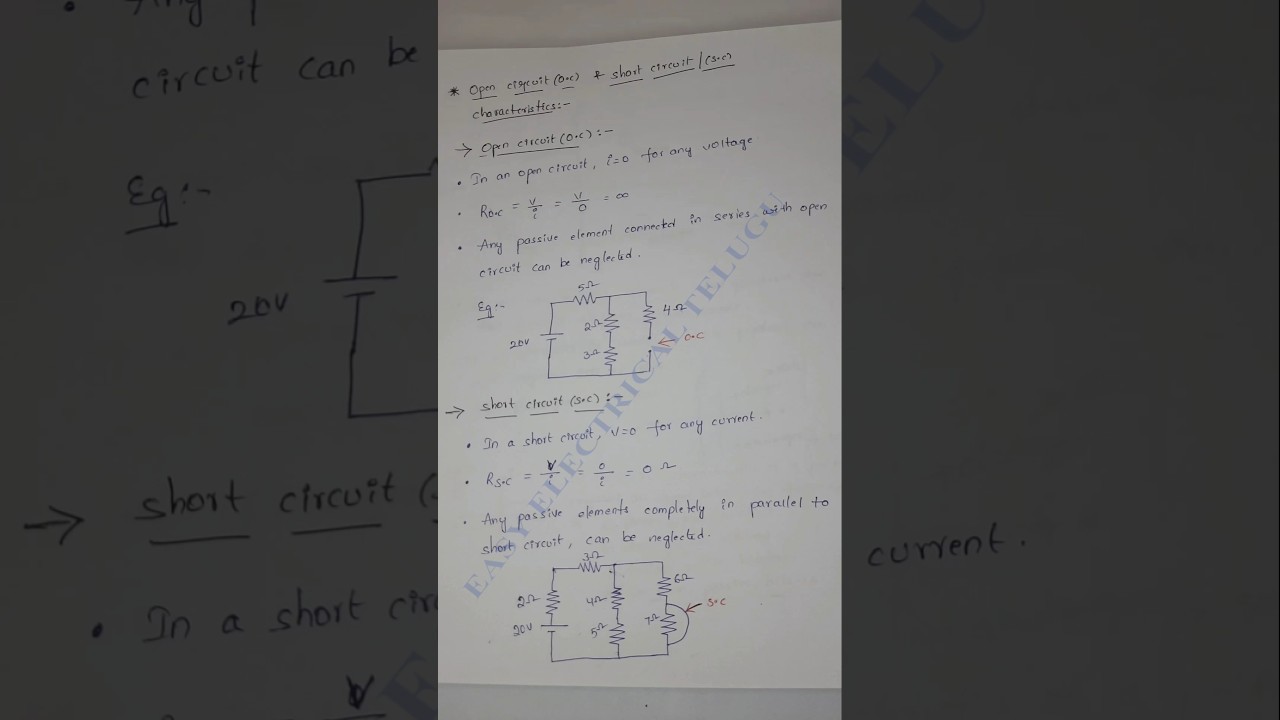 * Open circuit (O.C) & short circuit / (S.C)
characteristics:-
→ Open circuit (O.C) :-
• In an open circuit, i=0 for any voltage
• RO.C = V/i = V/0 = ∞
• Any passive element connected in series with open
circuit can be neglected.
Eg:-
5Ω
2Ω
4Ω
20V
3Ω
O.C
→ short circuit (S.C) :-
• In a short circuit, V=0 for any current.
• RS.C = V/i = 0/i = 0 Ω
• Any passive elements completely in parallel to
short circuit, can be neglected.
3Ω
2Ω
4Ω
6Ω
20V
5Ω
7Ω
S.C
EASY ELECTRICAL TELUGU
circuit can be
Eg:-
20V
→ short circuit (
• In a short cir
V
current.
ELU